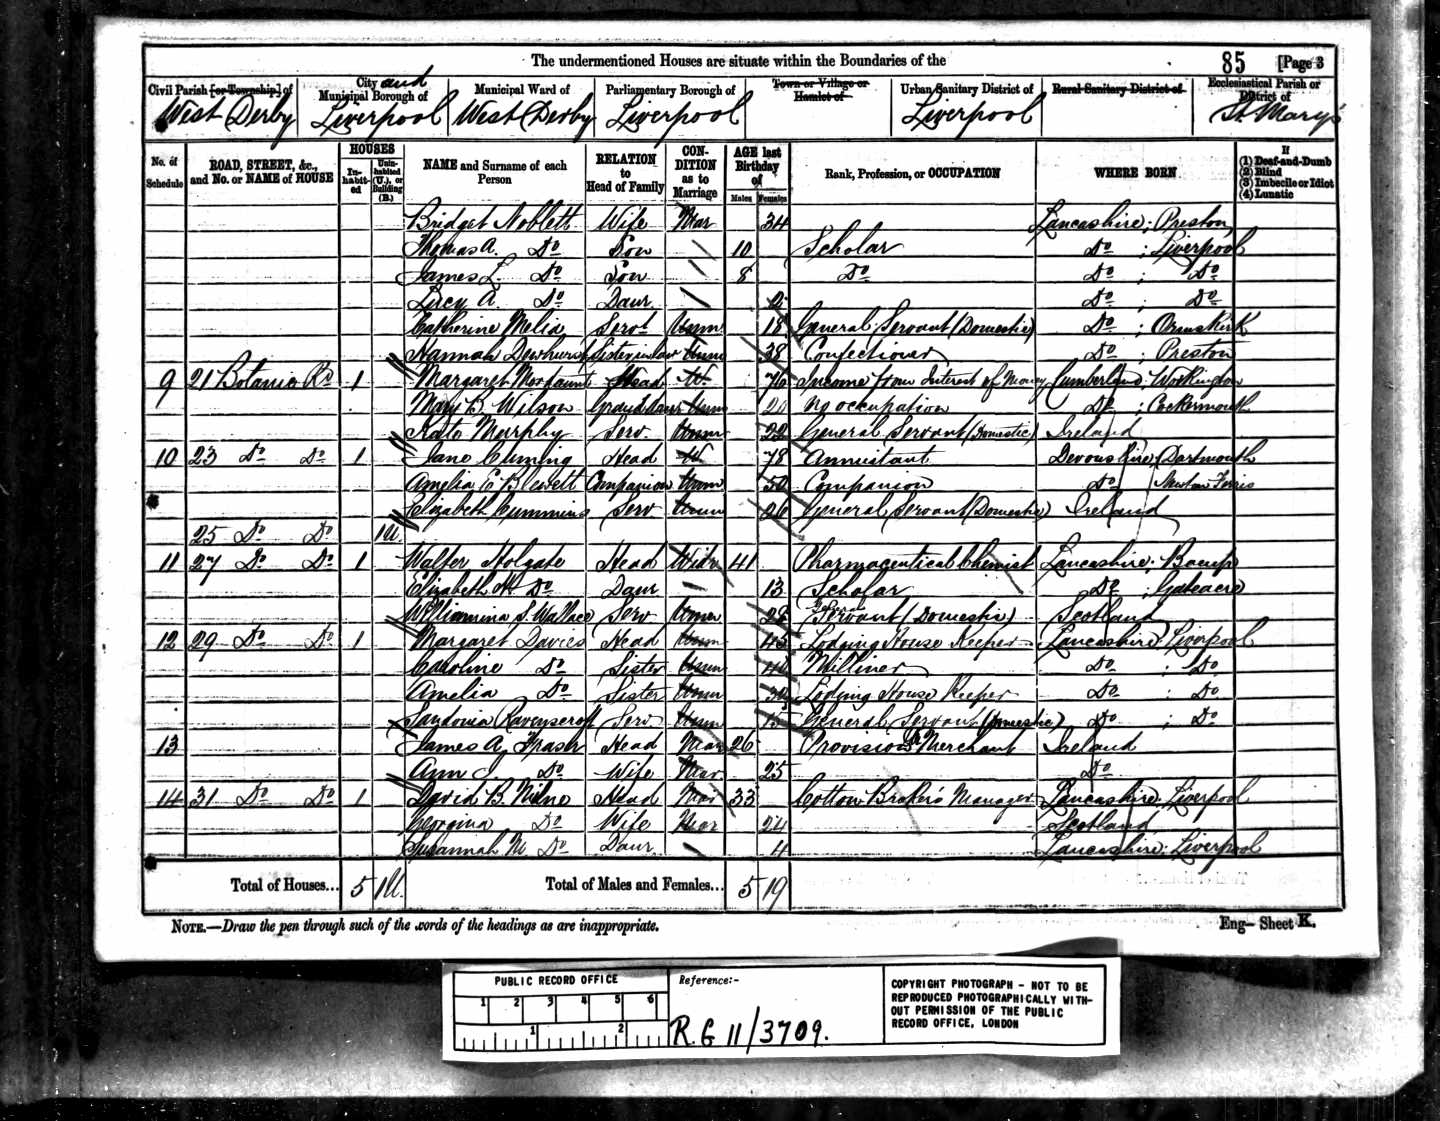 The undermentioned Houses are situate within the Boundaries of the
85 [Page 3
Civil Parish [or Township] of City and Municipal Borough of Municipal Ward of Parliamentary Borough of Town or Village or Hamlet of Urban Sanitary District of Rural Sanitary District of Ecclesiastical Parish or District of
West Derby Liverpool West Derby Liverpool Liverpool St Mary's
No. of Schedule ROAD, STREET, &c., and No. or NAME of HOUSE HOUSES Inhabited Uninhabited (U.), or Building (B.) NAME and Surname of each Person RELATION to Head of Family CONDITION as to Marriage AGE last Birthday of Males Females Rank, Profession, or OCCUPATION WHERE BORN If (1) Deaf-and-Dumb (2) Blind (3) Imbecile or Idiot (4) Lunatic
Bridget Noblett Wife Mar 34 Lancashire; Preston
Thomas A. Do Son 10 Scholar Do ; Liverpool
James L Do Son 8 Do Do ; Do
Lucy A. Do Daur Do ; Do
Catherine Melia Servt Unm 18 General Servant (Domestic) Do ; Ormskirk
Hannah Dewhurst Sister in law Unm 38 Confectioner Do ; Preston
9 21 Botanic Rd 1 Margaret Mordaunt Head W. 76 Income from Interest of Money Cumberland, Workington
Mary B. Wilson Grand Daur Unm 20 No occupation Do ; Cockermouth
Kate Murphy Serv. Unm 22 General Servant (Domestic) Ireland
10 23 Do Do 1 Jane Cuming Head W 78 Annuitant Devonshire, Dartmouth
Amelia E Blewett Companion Unm 50 Companion Do Newton Ferris
Elizabeth Cummins Serv Unm 26 General Servant (Domestic) Ireland
25 Do Do 1U.
11 27 Do Do 1 Walter Holgate Head Widr 41 Pharmaceutical Chemist Lancashire; Bacup
Elizabeth H Do Daur 13 Scholar Do ; Gateacre
Williamina S. Wallace Serv Unm 28 General Servant (Domestic) Scotland
12 29 Do Do 1 Margaret Davies Head Unm 45 Lodging House Keeper Lancashire, Liverpool
Caroline Do Sister Unm Milliner Do ; Do
Amelia Do Sister Unm Lodging House Keeper Do ; Do
Ravenscroft Serv Unm 15 General Servant (Domestic) Do ; Do
13 James A. Frash Head Mar 26 Provision Merchant Ireland
Ann J. Do Wife Mar 25 Do
14 31 Do Do 1 David B. Milne Head Mar 33 Cotton Broker's Manager Lancashire; Liverpool
Georgina Do Wife Mar 24 Scotland
Susannah M. Do Daur 4 Lancashire; Liverpool
Total of Houses... 5 1U. Total of Males and Females... 5 19
NOTE.—Draw the pen through such of the words of the headings as are inappropriate.
Eng— Sheet K.
PUBLIC RECORD OFFICE
1 2 3 4 5 6
1 2
Reference:-
R.G 11/3709.
COPYRIGHT PHOTOGRAPH - NOT TO BE
REPRODUCED PHOTOGRAPHICALLY WITH-
OUT PERMISSION OF THE PUBLIC
RECORD OFFICE, LONDON